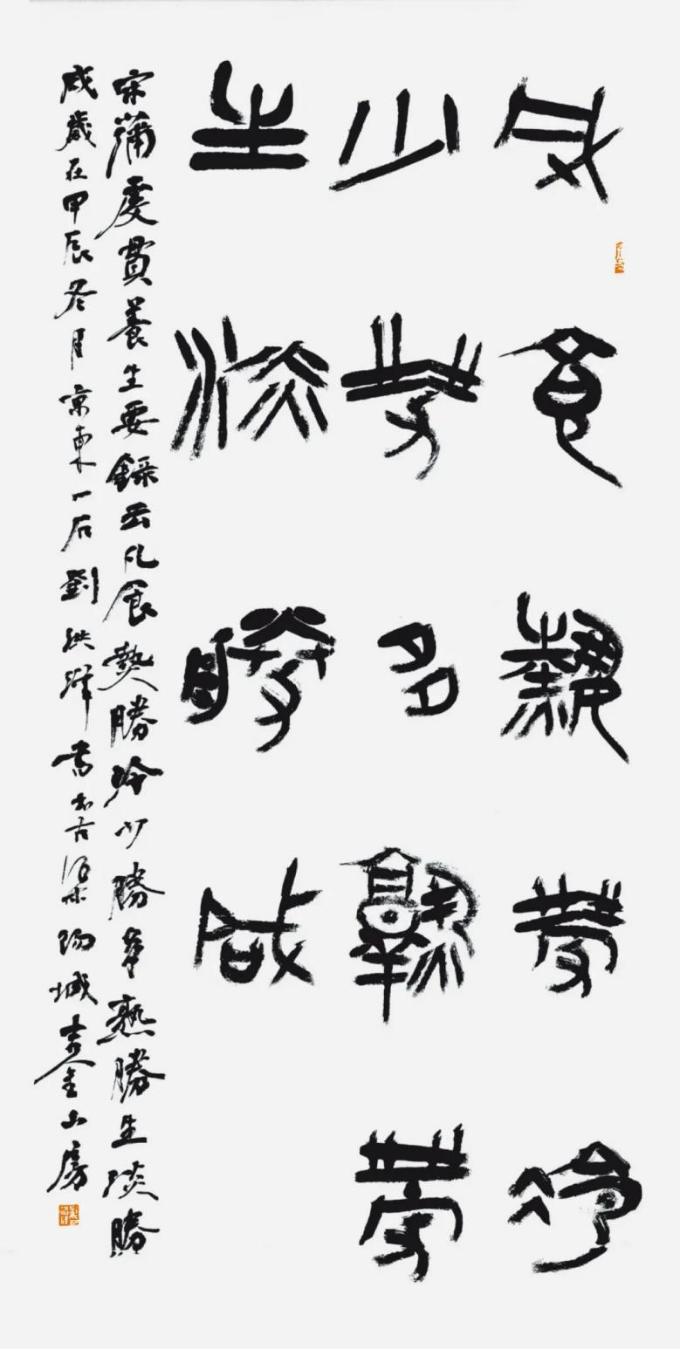 凡食熱勝冷
少勝多熟勝
生淡勝咸
宋蒲虔貫養生要錄云凡食熱勝冷少勝多熟勝生淡勝
咸歲在甲辰冬月京東一石劉洪澤書於古漁陽城金山房